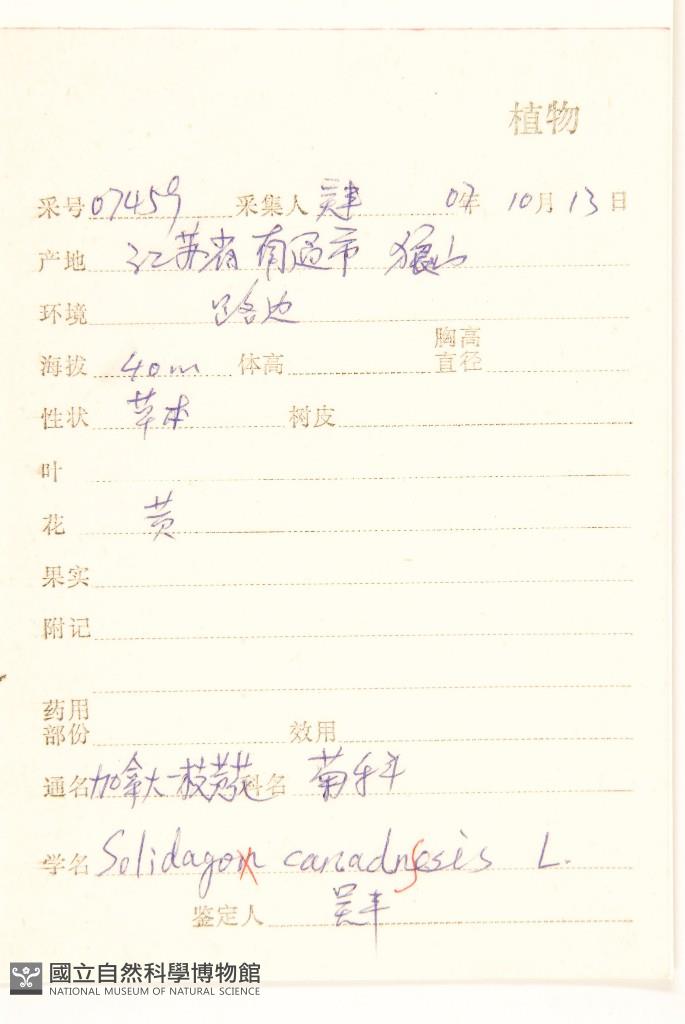 植物
采号 07459 采集人 吴丰 07年 10月 13日
产地 江苏省南通市 狼山
环境 路边
海拔 40m 体高 胸高直径
性状 草本 树皮
叶
花 黄
果实
附记
药用部份 效用
通名 加拿大一枝黄花 科名 菊科
学名 Solidagon canadnsesis L.
鉴定人 吴丰
國立自然科學博物館
NATIONAL MUSEUM OF NATURAL SCIENCE